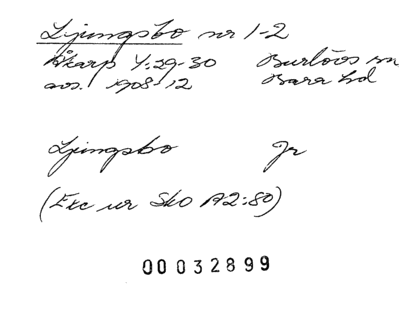 Ljungsbo nr 1-2
Åkarp 4:29-30 Burlövs sn
avs. 1908-12 Bara hd
Ljungsbo Jr
(Exc ur Sko A2:80)
00032899